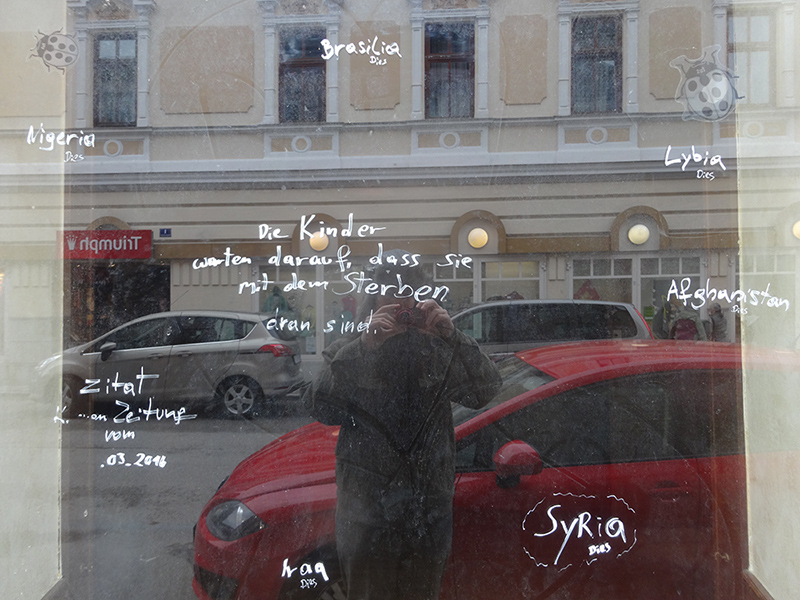 Brasilia
Dies
Nigeria
Dies
Lybia
Dies
Triumph
Die Kinder
warten darauf, dass sie
mit dem Sterben
dran sind.
Afghanistan
Dies
Zitat
K. ...en Zeitung
vom
.03_2016
SyRia
Dies
Iraq
Dies